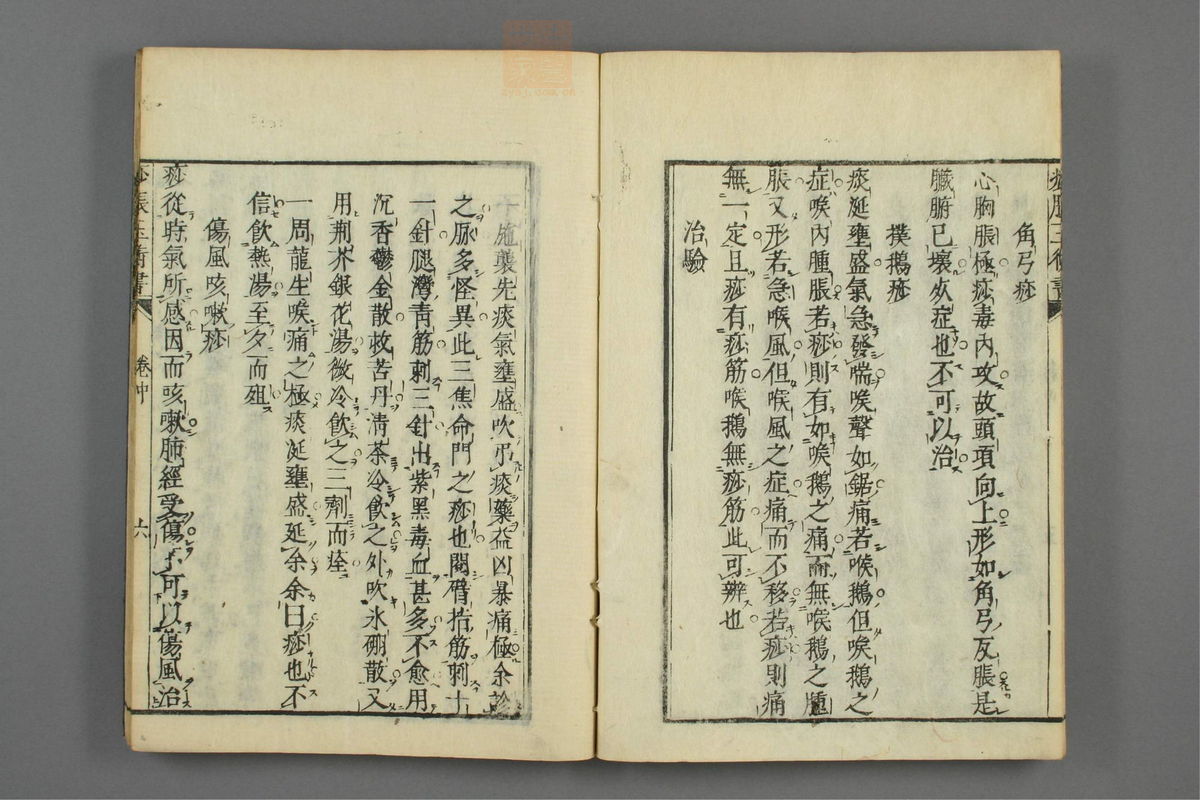 角弓痧
心胸脹極痧毒內攻故頭項向上形如角弓反脹是
臟腑已壞必症也不可以治
撲鵝痧
痰涎壅盛氣急發喘喉聲如鋸痛若喉鵝但喉鵝之
症喉內腫脹若痧則有如喉鵝之痛而無喉鵝之腫
脹又形若急喉風但喉風之症痛而不移若痧則痛
無一定且痧有痧筋喉鵝無痧筋此可辨也
治驗
施襲先痰氣壅盛吹弔痰藥益凶暴痛極余診
之脉多怪異此三焦命門之痧也閱臂指筋刺十
一針腿灣青筋刺三針出紫黑毒血甚多不愈用
沉香鬱金散救苦丹清茶冷飲之外吹氷硼散又
用荆芥銀花湯微冷飲之三劑而痊
一周龍生喉痛之極痰涎壅盛延余余曰痧也不
信飲熱湯至夕而殂
傷風咳嗽痧
痧從時氣所感因而咳嗽肺經受傷不可以傷風治
痧脹玉衡書
卷中
六